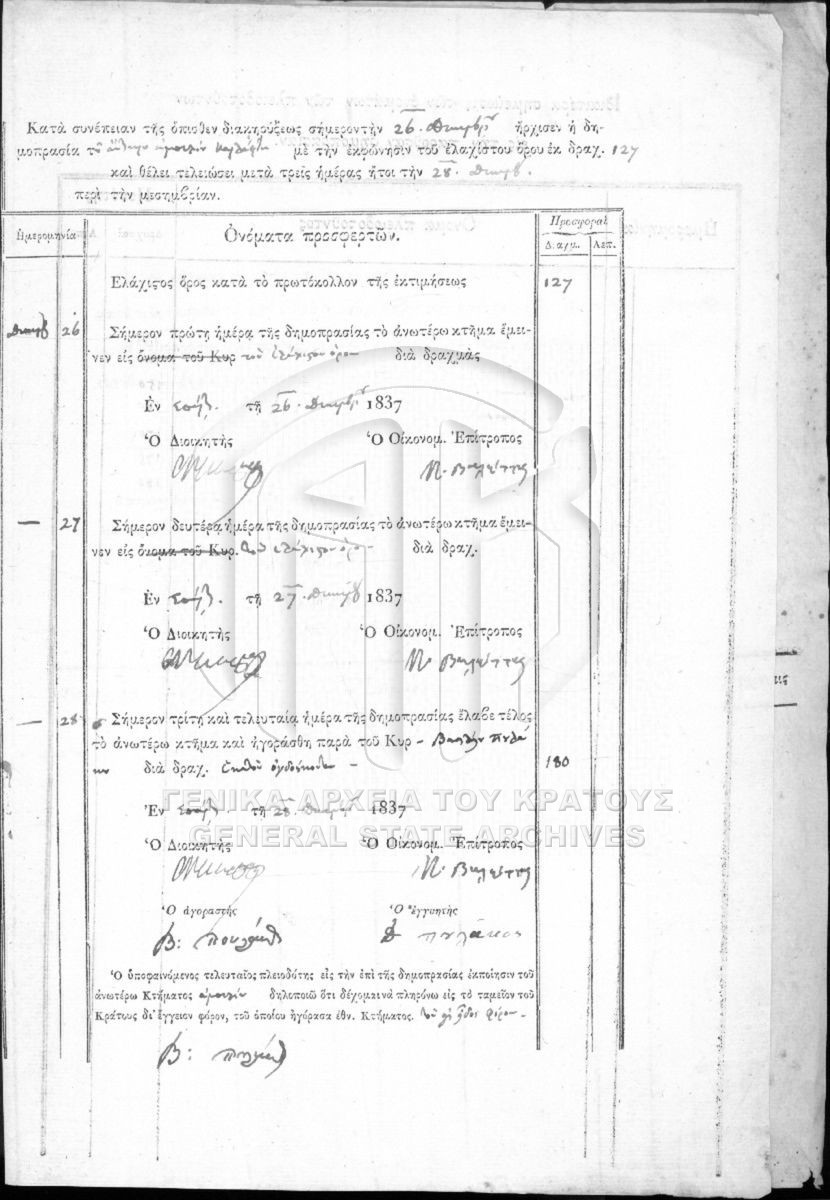 Κατὰ συνέπειαν τῆς ὄπισθεν διακηρύξεως σήμερον τὴν 26. Δεκεμβρ ἤρχισεν ἡ δη-
μοπρασία μὲ τὴν ἐκφώνησιν τοῦ ἐλαχίστου ὅρου ἐκ δραχ. 127
καὶ θέλει τελειώσει μετὰ τρεῖς ἡμέρας ἤτοι τὴν 28. Δεκεμβ.
περὶ τὴν μεσημβρίαν.
Ἡμερομηνία Ὀνόματα προσφερτῶν. Προσφοραὶ
Δραχμ. Λεπ.
Ἐλάχιστος ὅρος κατὰ τὸ πρωτόκολλον τῆς ἐκτιμήσεως 127
Δεκεμβ 26 Σήμερον πρώτῃ ἡμέρᾳ τῆς δημοπρασίας τὸ ἀνωτέρω κτῆμα ἔμει-
νεν εἰς ὄνομα τοῦ Κυρ τοῦ ἐλαχίστου ὅρου διὰ δραχμὰς
Ἐν τῇ 26. Δεκεμβρ 1837
Ὁ Διοικητὴς Ὁ Οἰκονομ. Ἐπίτροπος
— 27 Σήμερον δευτέρᾳ ἡμέρᾳ τῆς δημοπρασίας τὸ ἀνωτέρω κτῆμα ἔμει-
νεν εἰς ὄνομα τοῦ Κυρ. τοῦ ἐλαχίστου ὅρου διὰ δραχ.
Ἐν τῇ 27. Δεκεμβ 1837
Ὁ Διοικητὴς Ὁ Οἰκονομ. Ἐπίτροπος
— 28 Σήμερον τρίτῃ καὶ τελευταίᾳ ἡμέρᾳ τῆς δημοπρασίας ἔλαβε τέλος
τὸ ἀνωτέρω κτῆμα καὶ ἠγοράσθη παρὰ τοῦ Κυρ
διὰ δραχ. Ἑκατὸν ὀγδοήκοντα 180
ΓΕΝΙΚΑ ΑΡΧΕΙΑ ΤΟΥ ΚΡΑΤΟΥΣ
Ἐν τῇ 28. 1837
GENERAL STATE ARCHIVES
Ὁ Διοικητὴς Ὁ Οἰκονομ. Ἐπίτροπος
Ὁ ἀγοραστής Ὁ ἐγγυητὴς
Β:
Ὁ ὑποφαινόμενος τελευταῖος πλειοδότης εἰς τὴν ἐπὶ τῆς δημοπρασίας ἐκποίησιν τοῦ
ἀνωτέρω Κτήματος δηλοποιῶ ὅτι δέχομαι νὰ πληρόνω εἰς τὸ ταμεῖον τοῦ
Κράτους δι' ἔγγειον φόρον, τοῦ ὁποίου ἠγόρασα ἐθν. Κτήματος.
Β: